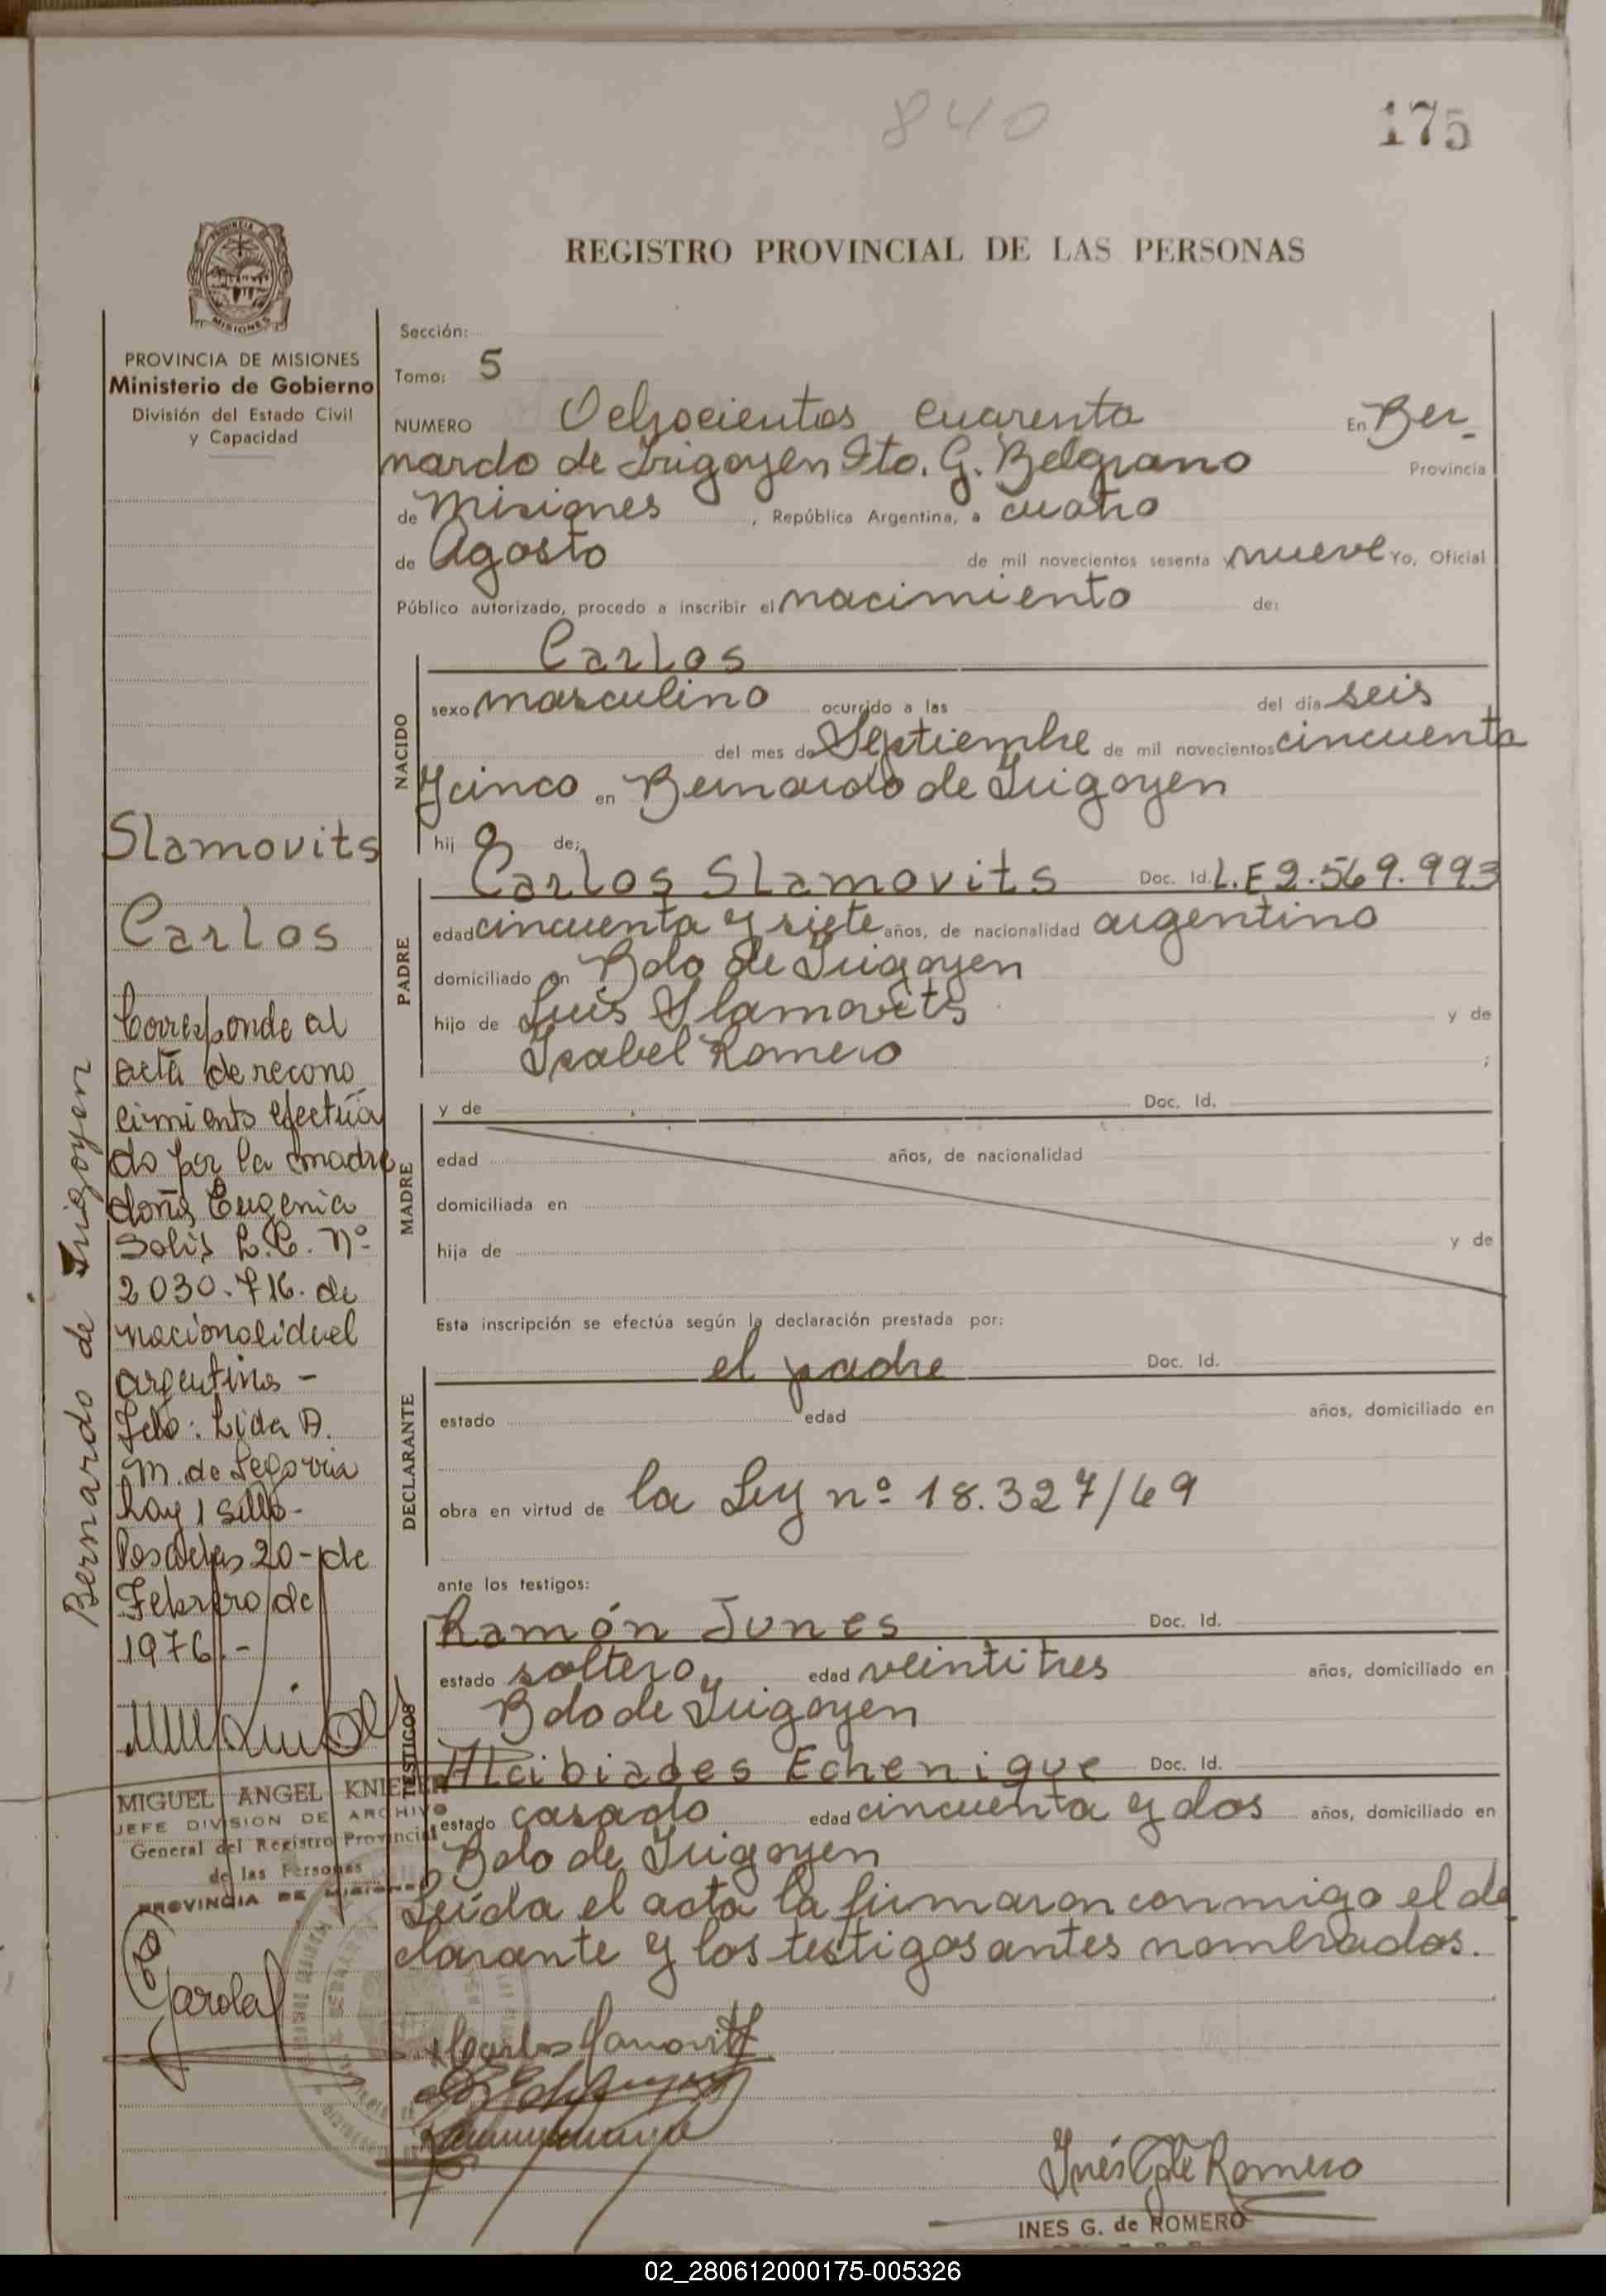 840
175
REGISTRO PROVINCIAL DE LAS PERSONAS
PROVINCIA DE MISIONES
Ministerio de Gobierno
División del Estado Civil
y Capacidad
Sección:
Tomo: 5
NUMERO Ochocientos cuarenta En Ber-
nardo de Irigoyen Dto. G. Belgrano Provincia
de Misiones, República Argentina, a cuatro
de Agosto de mil novecientos sesenta y nueve Yo, Oficial
Público autorizado, procedo a inscribir el nacimiento de:
NACIDO
Carlos
sexo masculino ocurrido a las del día seis
del mes de Septiembre de mil novecientos cincuenta
y cinco en Bernardo de Irigoyen
hijo de:
PADRE
Carlos Slamovits Doc. Id. L.E 2.569.993
edad cincuenta y siete años, de nacionalidad argentino
domiciliado en Bdo de Irigoyen
hijo de Luis Slamovits y de
Isabel Romero ;
MADRE
y de Doc. Id.
edad años, de nacionalidad
domiciliada en
hija de y de
Esta inscripción se efectúa según la declaración prestada por:
DECLARANTE
el padre Doc. Id.
estado edad años, domiciliado en
obra en virtud de la Ley nº 18.327/69
ante los testigos:
TESTIGOS
Ramón Junes Doc. Id.
estado soltero edad veintitres años, domiciliado en
Bdo de Irigoyen
Alcibiades Echenique Doc. Id.
estado casado edad cincuenta y dos años, domiciliado en
Bdo de Irigoyen
Leída el acta la firmaron conmigo el de
clarante y los testigos antes nombrados.
Inés G de Romero
INES G. de ROMERO
Slamovits
Carlos
Corresponde al
acta de recono
cimiento efectua
do por la madre
doña Eugenia
Solis L.C. Nº
2030.716. de
nacionalidad
argentina -
Fdo: Lida A.
M. de Segovia
hay 1 sello -
Posadas 20 - de
Febrero de
1976.-
MIGUEL ANGEL
JEFE DIVISION DE ARCHIVO
General del Registro Provincial
de las Personas
PROVINCIA DE MISIONES
Bernardo de Irigoyen
02_280612000175-005326